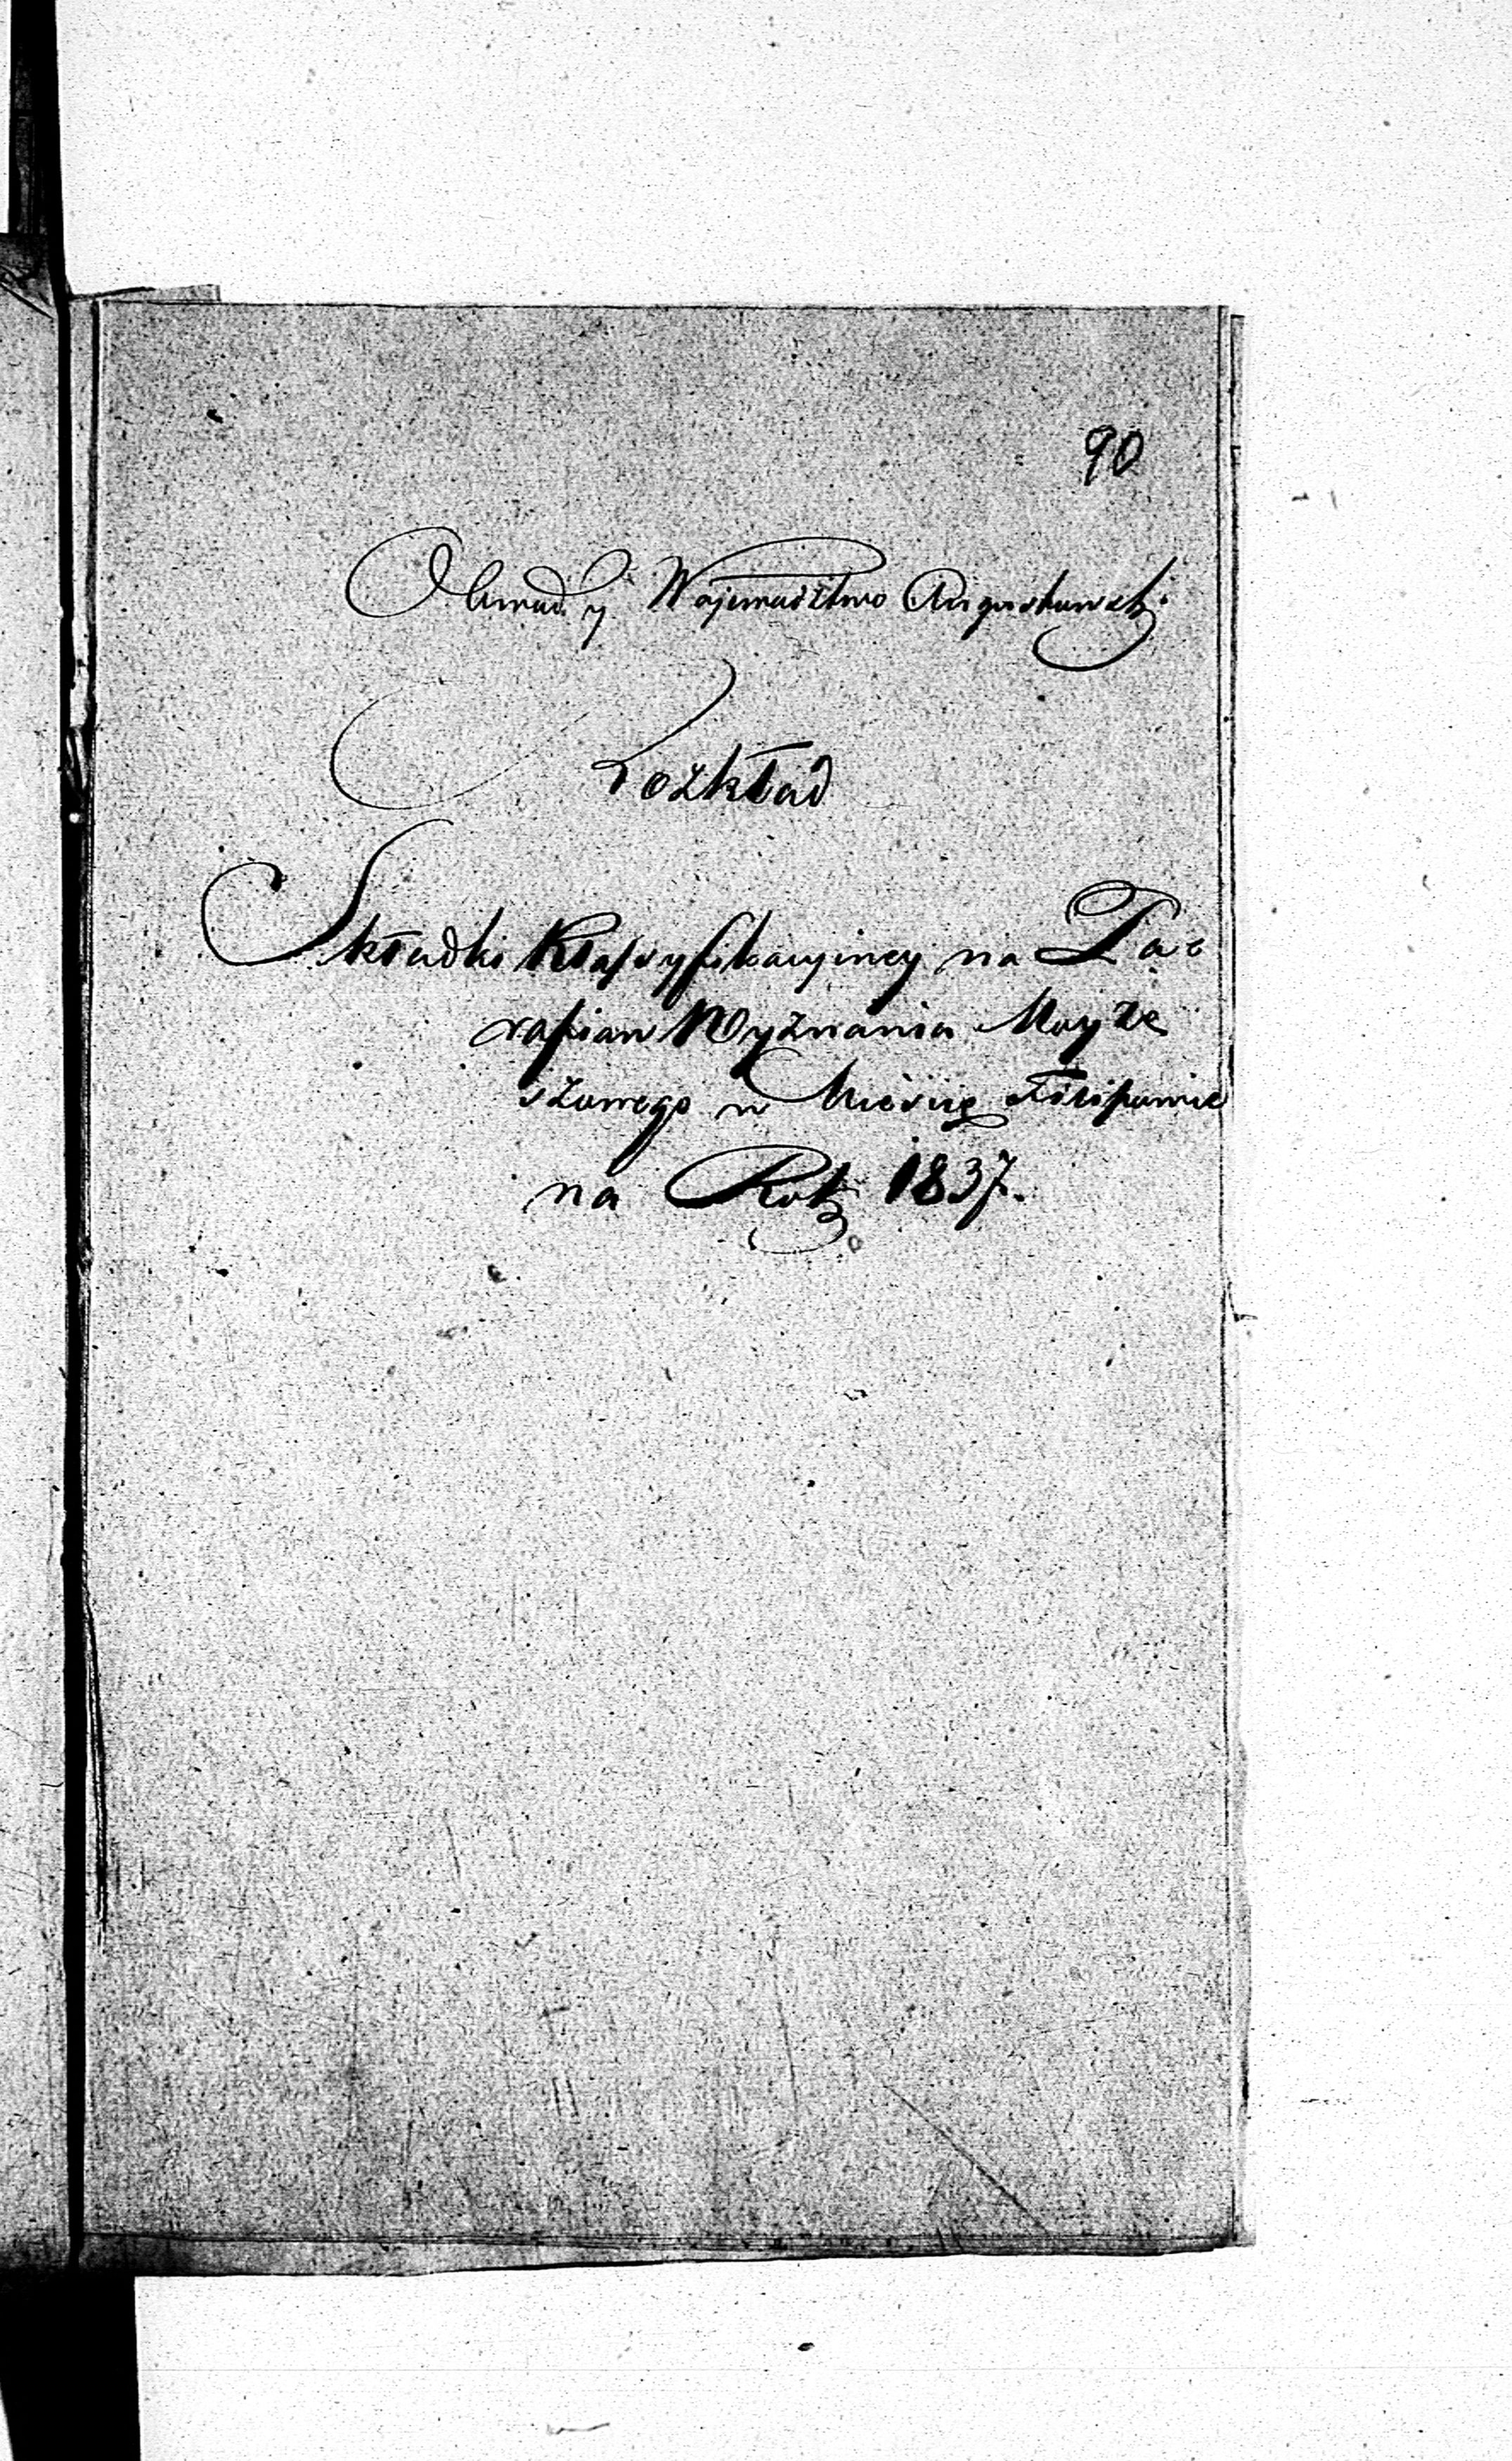 90
Obwod y Wojewodztwo Augustowski
Rozkład
Składki Klassyfikacyiney na Pa=
rafian Wyznania Moyże
szowego w Mieście Filipowie
na Rok 1837.